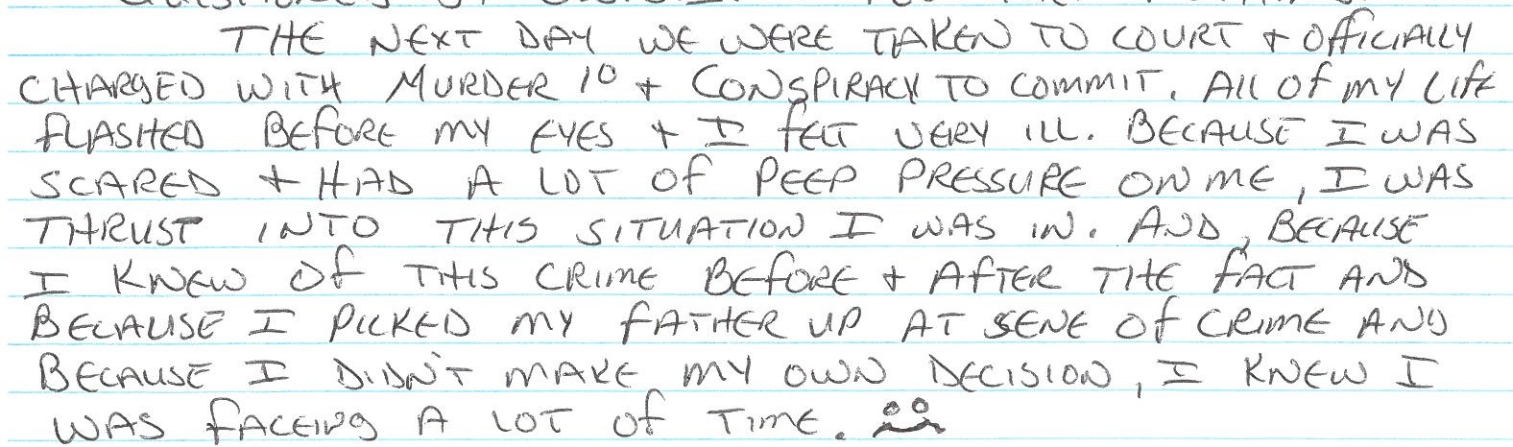 THE NEXT DAY WE WERE TAKEN TO COURT + OFFICIALLY
CHARGED WITH MURDER 1° + CONSPIRACY TO COMMIT. ALL OF MY LIFE
FLASHED BEFORE MY EYES + I FELT VERY ILL. BECAUSE I WAS
SCARED + HAD A LOT OF PEEP PRESSURE ON ME, I WAS
THRUST INTO THIS SITUATION I WAS IN. AND, BECAUSE
I KNEW OF THIS CRIME BEFORE + AFTER THE FACT AND
BECAUSE I PICKED MY FATHER UP AT SENE OF CRIME AND
BECAUSE I DIDN'T MAKE MY OWN DECISION, I KNEW I
WAS FACEING A LOT OF TIME.